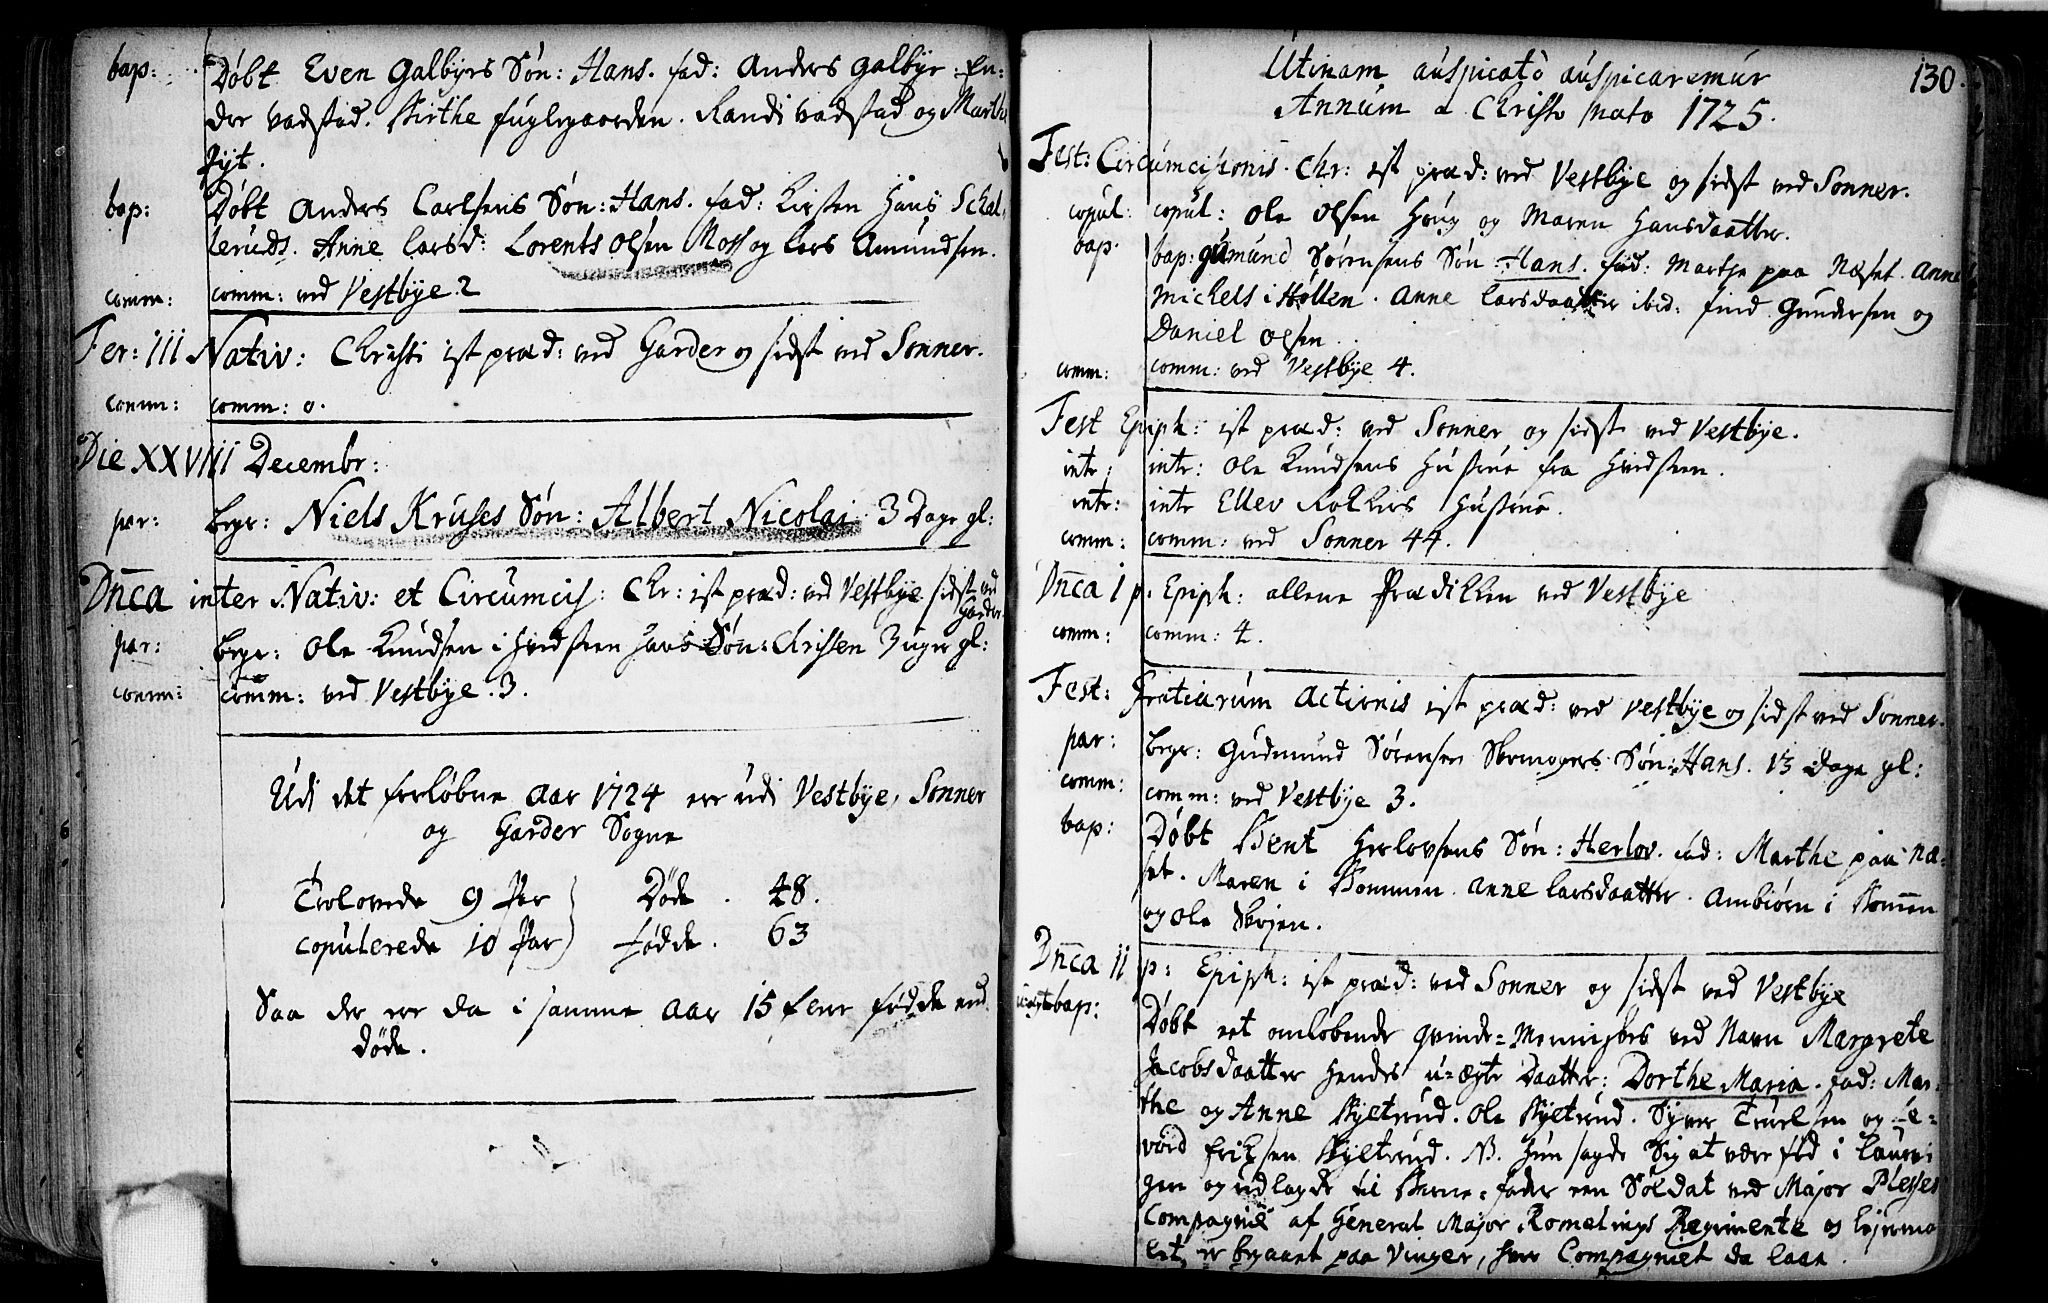 bap: Døbt Even Galbyes Søn: Hans. fad: Anders Galbye. En-
der Vadstad. Birthe fuglegaarden. Randi Vadstad og Marthe
Pijt.
bap: Døbt Anders Carlsens Søn: Hans. fad: Kirsten Hans Schal-
leruds. Anne Larsd: Lorents Olsen Moss og Lars Amundsen.
comm: comm: ved Vestbye. 2
Fer: III Nativ: Christi ist præd: ved Garder og sidst ved Sonner.
comm: comm: 0.
Die XXVIII Decembr:
par: begr: Niels Kruses Søn: Albert Nicolai 3 Dage gl:
Dn̄ca inter Nativ: et Circumcis: Chr: ist præd: ved Vestbye sidst ved
Garder.
par: begr: Ole Knudsen i Hvidsteen hans Søn: Christen 3 uger gl:
comm: comm: ved Vestbye. 3.
Udi det forløbne Aar 1724 ere udi Vestbye, Sonner
og Garder Sogne
Trolovede 9 Par } Døde . 48.
copulerede 10 Par } fødde . 63
Saa der ere da i samme Aar 15 flere fødde end
døde.
Utinam auspicatò auspicaremur 130.
Annum a Christo nato 1725.
Fest: Circumcisionis. Chr: ist præd: ved Vestbye og sidst ved Sonner.
copul: copul: Ole Olsen Houg og Maren Hansdaatter.
bap. bap: Gumund Sørensens Søn Hans. fad: Marthe paa Næset. Anne
Michels i Høllen. Anne Larsdaatter ibid: find Gundersen og
Daniel Olsen.
comm: comm: ved Vestbye 4.
Fest Epiph: ist præd: ved Sonner og sidst ved Vestbye.
intr: intr: Ole Knudsens Hustrue fra Hvidsteen.
intr: intr Ellev Holters Hustrue.
comm: comm: ved Sonner 44.
Dn̄ca I p. Epiph: allene Prædikken ved Vestbye
comm: comm: 4.
Fest: Gratiarum Actionis ist præd: ved Vestbye og sidst ved Sonner.
par: begr: Gudmund Sørensen Søn: Hans. 13 Dage gl:
comm: comm: ved Vestbye 3.
bap: Døbt Bent Herlovsens Søn: Herlov. fad: Marthe paa Næ-
set. Maren i Kommen. Anne Larsdaatter. Ambiørn i Kom̄en
og Ole Skojen.
Dn̄ca II p: Epiph: ist præd: ved Sonner og sidst ved Vestbye
bap: Døbt eet omløbende qvinde-Menniskes ved Navn Margrete
Jacobsdaatter hendes u-ægte Daatter: Dorthe Maria. fad: Mar-
the og Anne Kyltrud. Ole Kyltrud. Syver Truelsen og E-
vord fritzsen Kyltrud. NB. Hun sagde Sig at være fød i Laurvi
gen og udlagde til Barne-fader een Soldat ved Major Plesses
Compagnie af General Major Romelings Regimente og
let er begaaet paa Vinger, hvor Compagniet da laae.